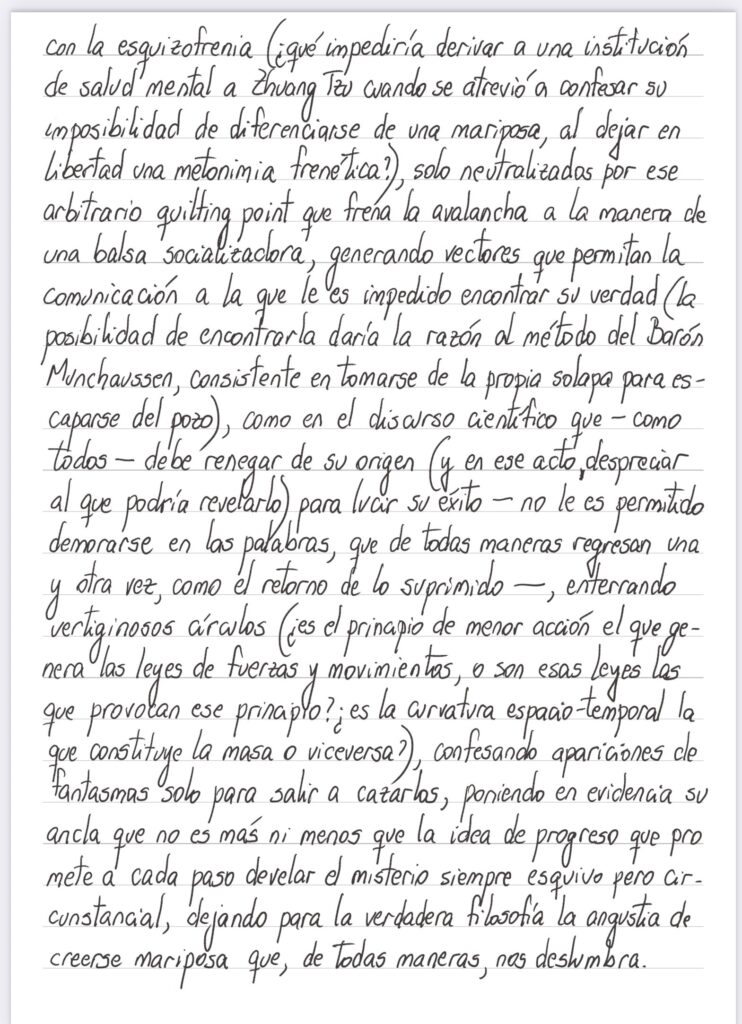 con la esquizofrenia (¿qué impediría derivar a una institución
de salud mental a Zhuang Tzu cuando se atrevió a confesar su
imposibilidad de diferenciarse de una mariposa, al dejar en
libertad una metonimia frenética?), solo neutralizadas por ese
arbitrario quilting point que frena la avalancha a la manera de
una balsa socializadora, generando vectores que permitan la
comunicación a la que le es impedido encontrar su verdad (la
posibilidad de encontrarla daría la razón al método del Barón
Munchaussen, consistente en tomarse de la propia solapa para es-
caparse del pozo), como en el discurso científico que – como
todos – debe renegar de su origen (y en ese acto, despreciar
al que podría revelarlo) para lucir su éxito – no le es permitido
demorarse en las palabras, que de todas maneras regresan una
y otra vez, como el retorno de lo suprimido –, enterrando
vertiginosos círculos (¿es el principio de menor acción el que ge-
nera las leyes de fuerzas y movimientos, o son esas leyes las
que provocan ese principio? ¿es la curvatura espacio-temporal la
que constituye la masa o viceversa?), confesando apariciones de
fantasmas solo para salir a cazarlos, poniendo en evidencia su
ancla que no es más ni menos que la idea de progreso que pro
mete a cada paso develar el misterio siempre esquivo pero cir-
cunstancial, dejando para la verdadera filosofía la angustia de
creerse mariposa que, de todas maneras, nos deslumbra.